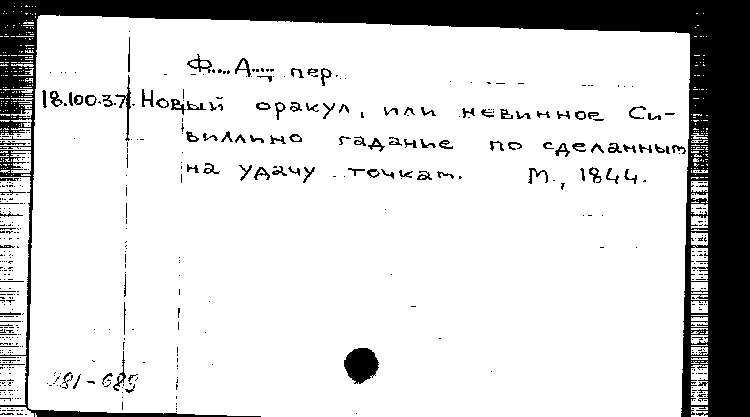 Ф..... А..... пер.
18.100.3.71. Новый оракул, или невинное Си-
виллино гадание по сделанным
на удачу точкам. М., 1844.
981-689